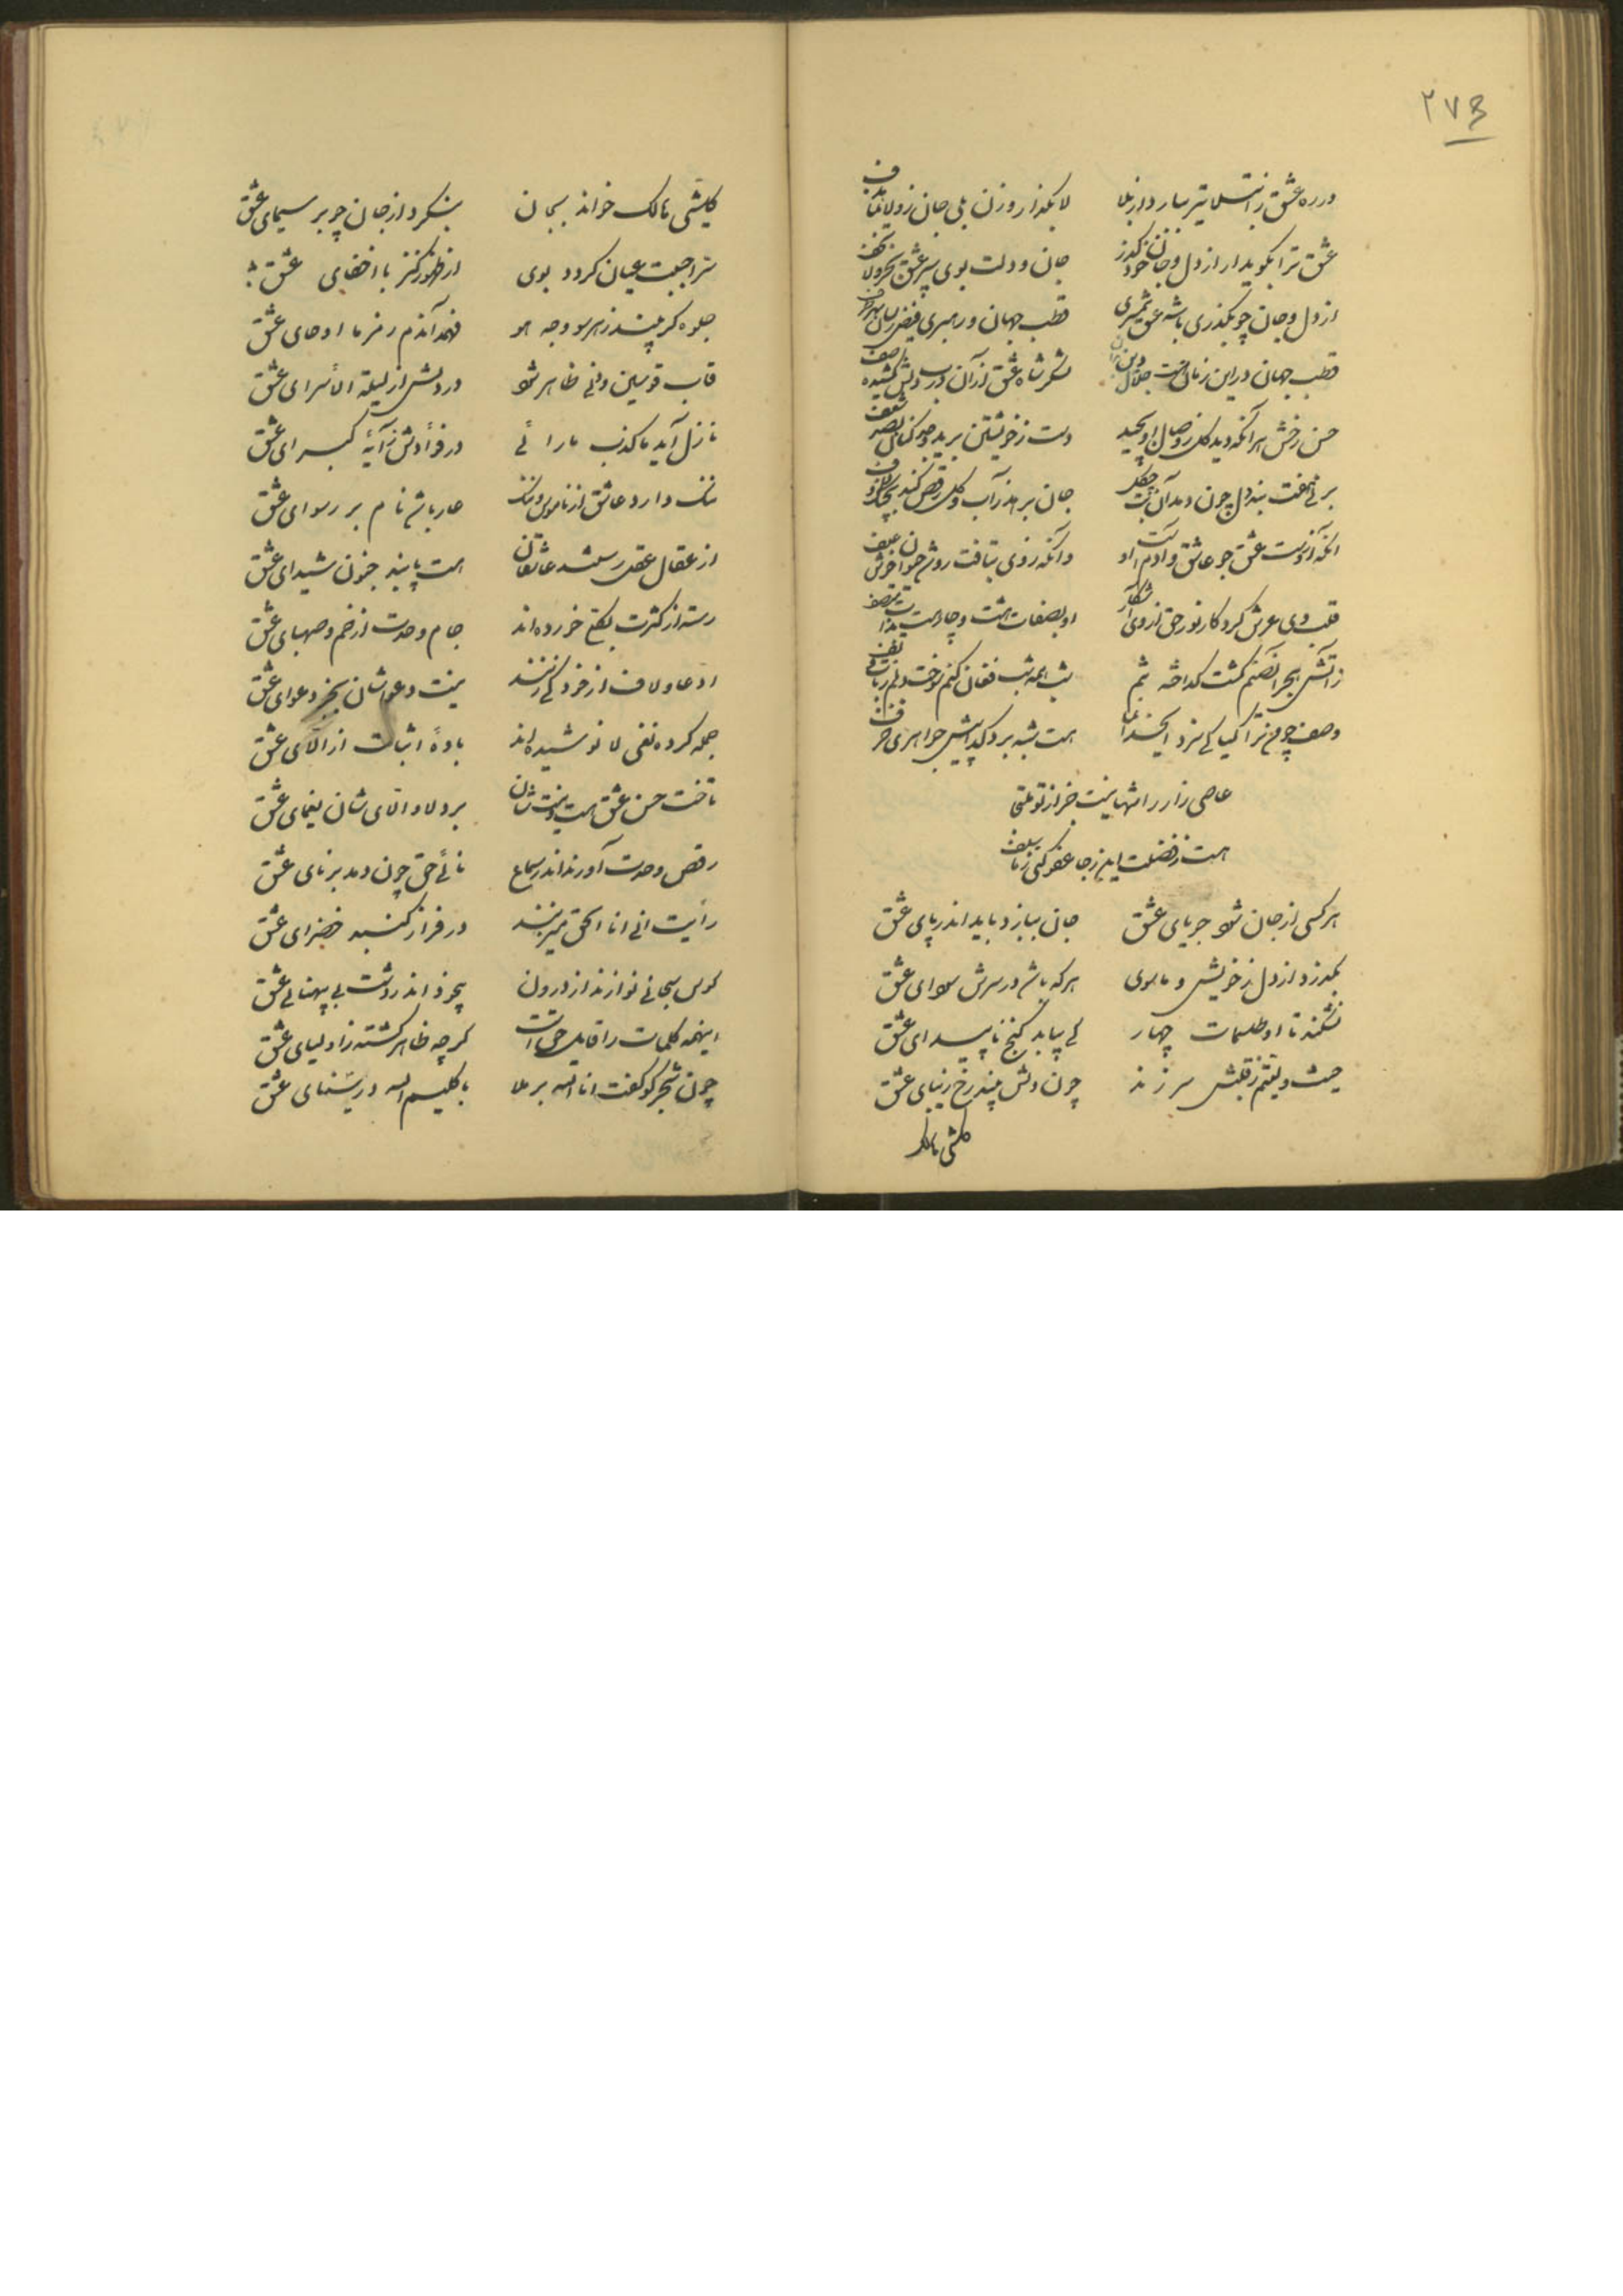 ۲۷۳
در ره عشق تیر بلا
لا بگذار و زن بلی جان
عشق ترا بگوید ار از دل و جان خود گذر
جان و دلت بوی سر عشق
از دل و جان چو بگذری باشه عشق
قطب جهان و رهبری فیض
قطب جهان در این زمان هست جلال دین
لشکر شاه عشق از آن در دلش کشیده صف
حسن رخش هر آنکه دید گل ز وصال او بچید
دست ز خویشتن برید
جان برهد ز آب و گل رقص کند
آنکه از دوست عشق جو عاشق و
وآنکه ز وی بتافت رو
قلب وی عرش کردگار نور حق از وی آشکار
او بصفات هشت و چار هست بذات متصف
ز آتش هجر آن صنم گشت گداخته تنم
شب همه شب فغان کنم سوخت دلم
وصف چو من ترا کیا کی سزد ایخدا نما
هست شبه برد گدا پیش جواهری خزف
عاصی زار را شها نیست جز از تو ملتجا
هست ز فضلت این رجا عفو کنی ز ما سلف
هر کسی از جان شود جویای عشق
جان ببازد باید اندر پای عشق
بگذرد از دل ز خویش و ما سوی
هر که باشد در سرش سودای عشق
نشکند تا او طلسمات چهار
کی بیابد گنج ناپیدای عشق
حیث وجهتم ز قلبش سر زند
چون دلش بیند رخ زیبای عشق
کلشی هالک
کلشی هالک خواند بجان
بنگرد از جان چو بر سیمای عشق
سر احببت عیان گردد بوی
از ظهور کنز با اخفای عشق
جلوه گر بیند ز هر سو وجه هو
فهمد آندم رمز ما اوحای عشق
قاب قوسین دنی ظاهر شود
در دلش از لیلة الأسرای عشق
نازل آید ما کذب ما رائی
در فؤادش ز آیهٔ کبرای عشق
ننگ دارد عاشق از ناموس و ننگ
عار باشد نام بر رسوای عشق
از عقال عقل رستند عاشقان
هست پابند جنون شیدای عشق
رسته از کثرت بکلی خورده‌اند
جام وحدت از خم و صهبای عشق
ادعا و لاف از خود کی زنند
نیست دعواشان بجز دعوای عشق
جمله کرده نفی لا نوشیده‌اند
بادهٔ اثبات از الای عشق
تاخت حسن عشق هست و نیست شان
برد لا و الای شان یغمای عشق
رقص وحدت آورند اندر سماع
نائی حق چون دمد بر نای عشق
رأیت انی انا الحق میزنند
در فراز گنبد خضرای عشق
کوس سبحانی نوازند از درون
بیخود اندر دشت بی پهنای عشق
اینهمه کلمات را قایل حق است
گرچه ظاهر گشته ز اولیای عشق
چون شجر کو گفت انا الله بر ملا
با کلیم الله در سینای عشق